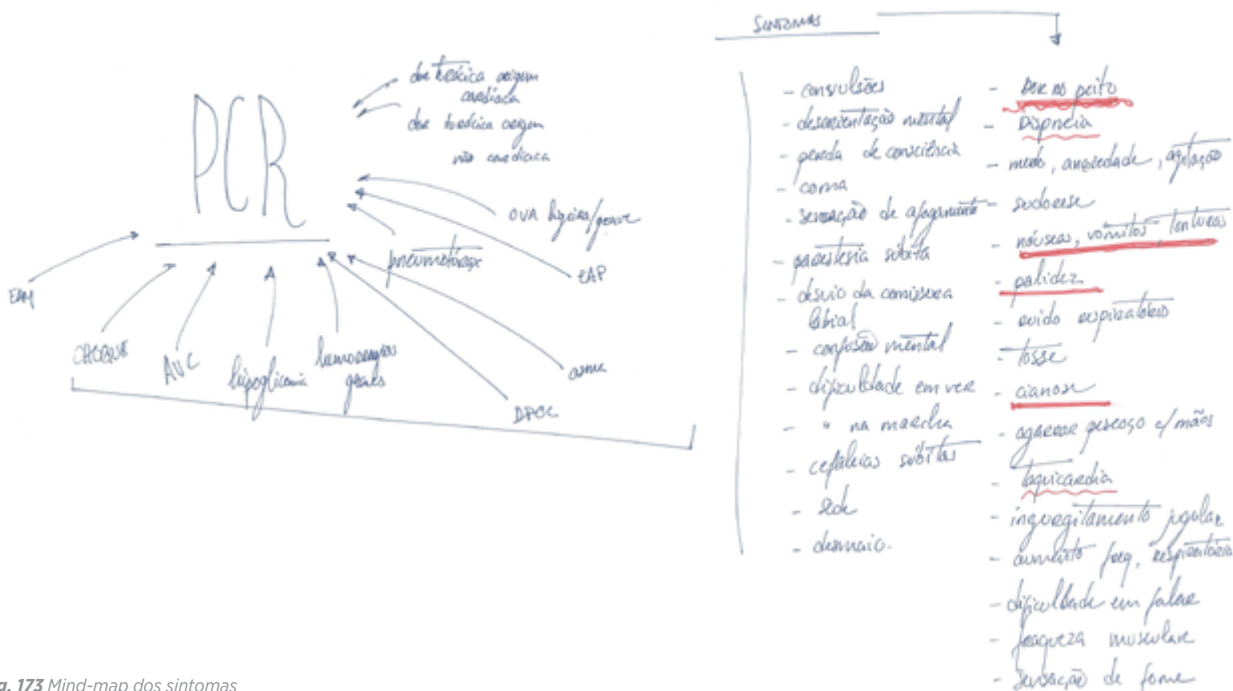 PCR
dor torácica origem
cardíaca
dor torácica origem
não cardíaca
OVA ligeira/grave
EAP
pneumotórax
asma
DPOC
hemorragias
graves
hipoglicemia
AVC
CHOQUE
EAM
SINTOMAS
- convulsões
- desorientação mental
- perda de consciência
- coma
- sensação de afogamento
- parestesia súbita
- desvio da comissura
labial
- confusão mental
- dificuldade em ver
- " na marcha
- cefaleias súbitas
- sede
- desmaio.
- Dor no peito
- Dispneia
- medo, ansiedade, agitação
- sudorese
- náuseas, vómitos, tonturas
- palidez
- ruido respiratório
- tosse
- cianose
- agarrar pescoço c/ mãos
- taquicardia
- ingurgitamento jugular
- aumento freq. respiratória
- dificuldade em falar
- fraqueza muscular
- sensação de fome
g. 173 Mind-map dos sintomas